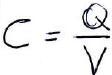 C = Q/V